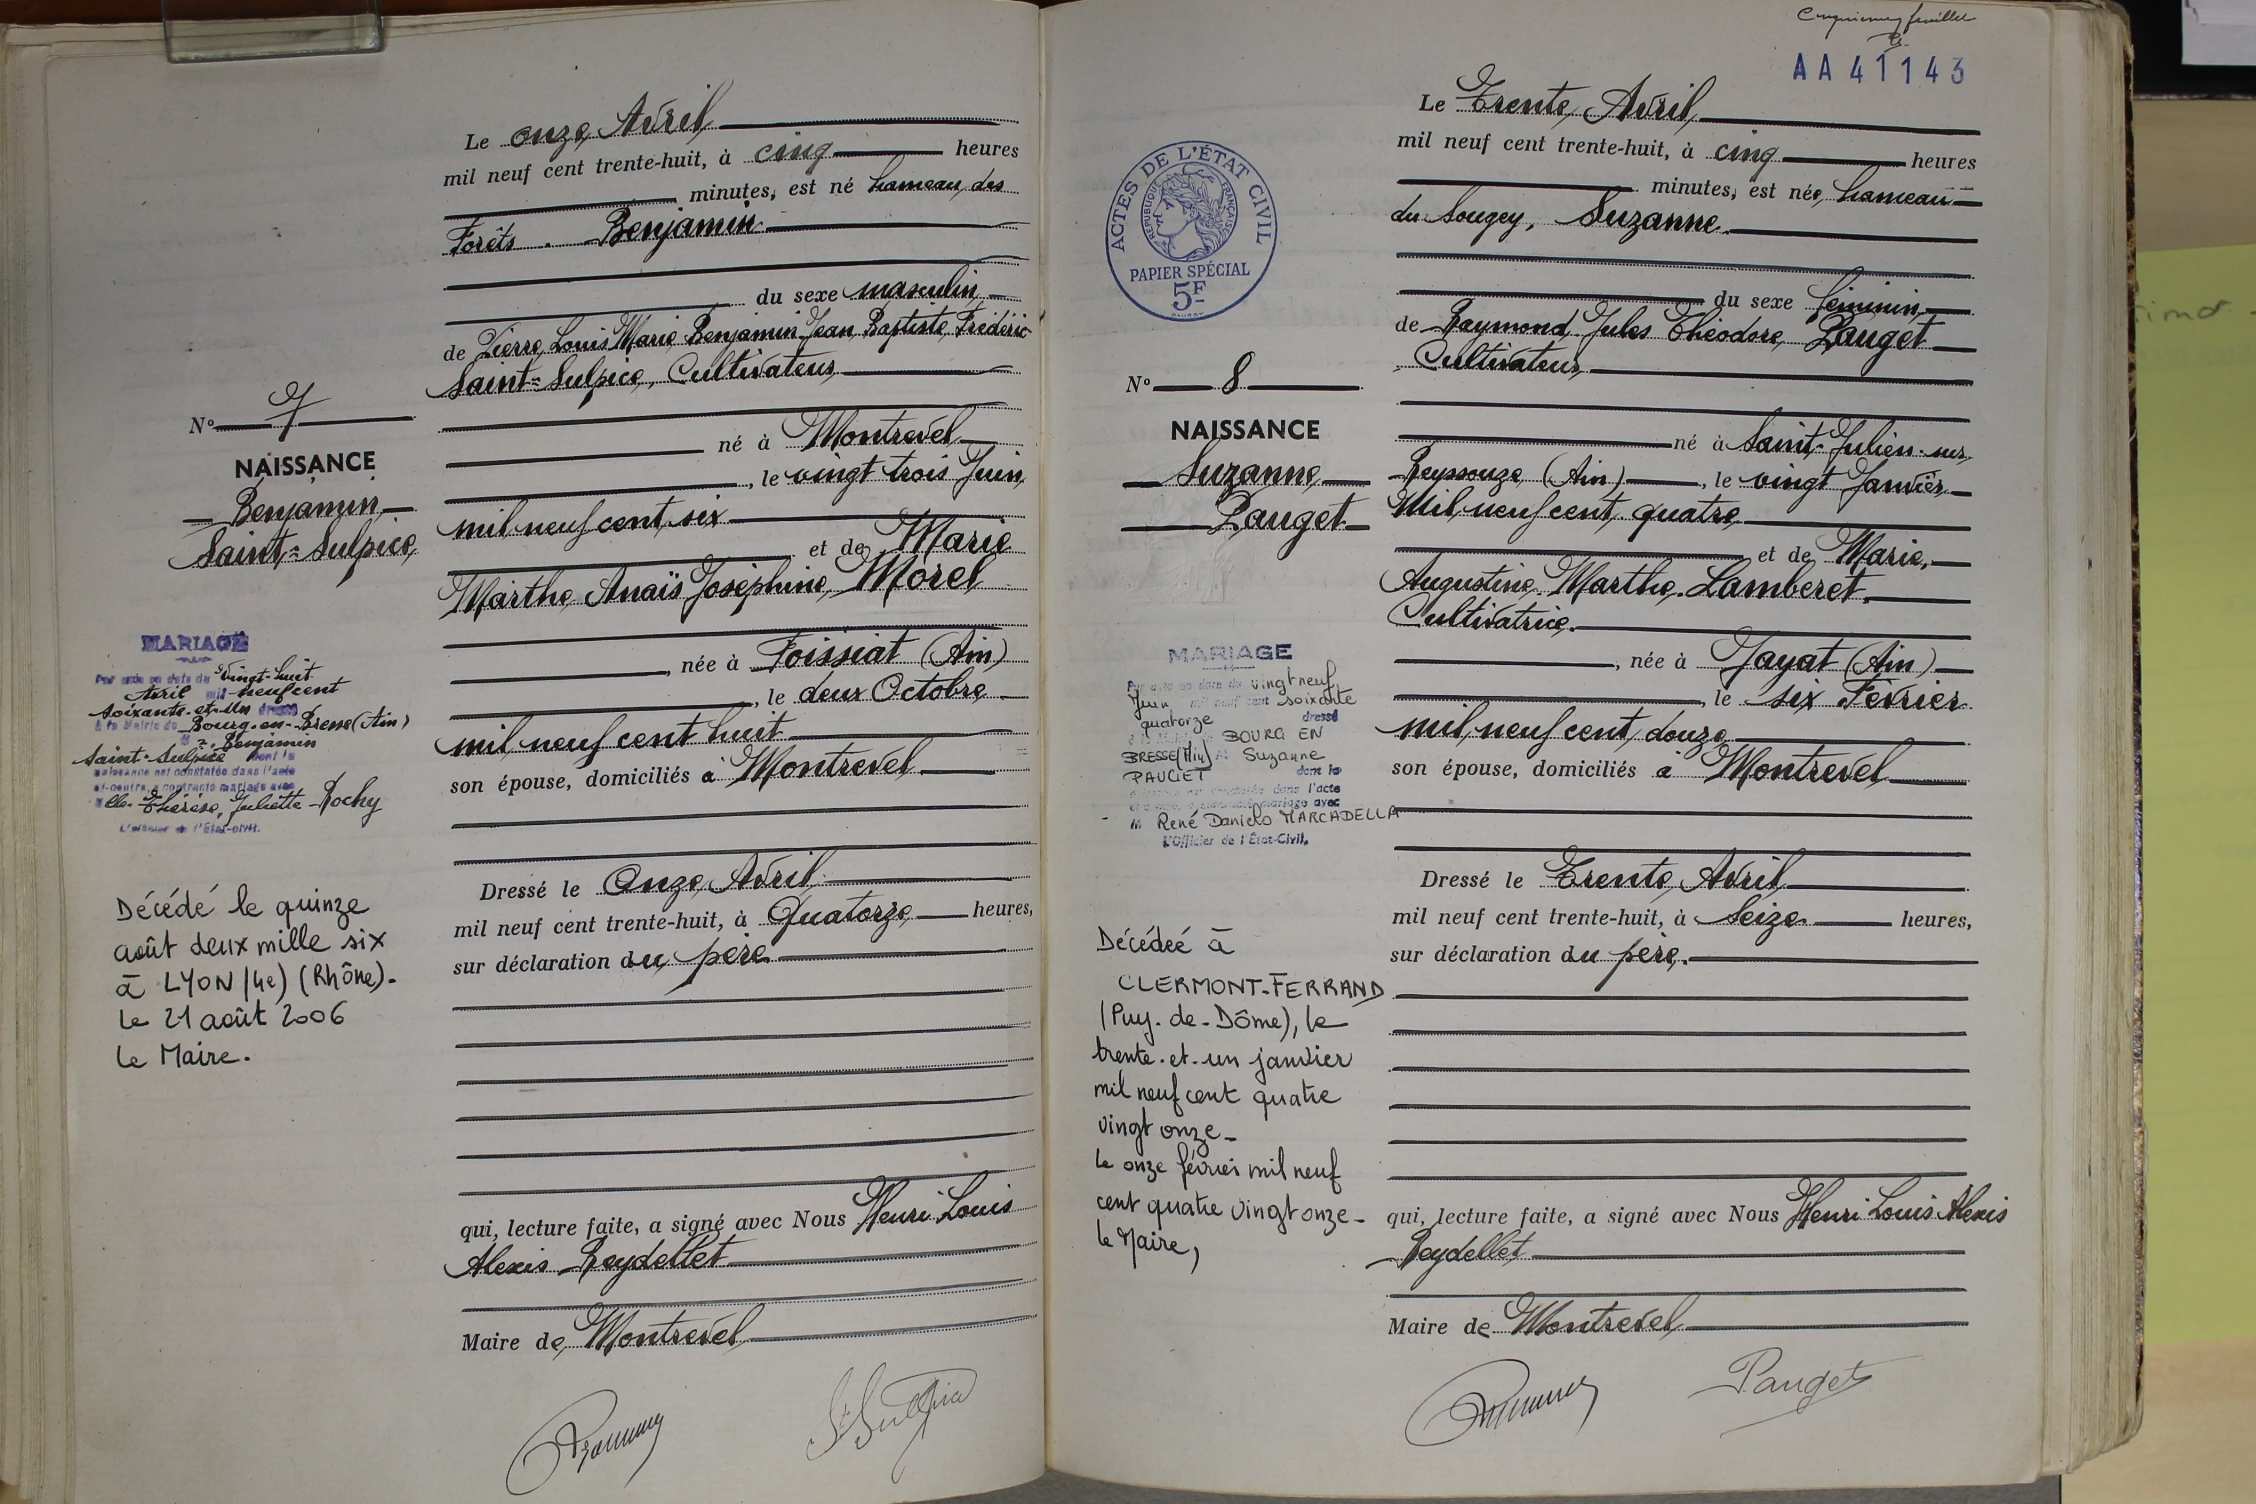 Le onze Avril
mil neuf cent trente-huit, à cinq heures
minutes, est né hameau des
Forêts. Benjamin
du sexe masculin
de Pierre Louis Marie Benjamin Jean Baptiste Frédéric
Saint-Sulpice, Cultivateur
N° 7
né à Montrevel
NAISSANCE
, le vingt trois Juin
Benjamin
mil neuf cent six
Saint-Sulpice
et de Marie
Marthe Anaïs Joséphine Morel
née à Foissiat (Ain)
, le deux Octobre
mil neuf cent huit
son épouse, domiciliés à Montrevel
MARIAGE
Par acte en date du Vingt-huit
Avril mil neuf cent
soixante-et-un dressé
à la Mairie de Bourg-en-Bresse (Ain)
M. Benjamin
Saint-Sulpice dont la
naissance est constatée dans l'acte
ci-contre, a contracté mariage avec
Mlle Thérèse, Juliette Rochy
L'officier de l'État-civil.
Dressé le Onze Avril
mil neuf cent trente-huit, à Quatorze heures,
sur déclaration du père
Décédé le quinze
août deux mille six
à LYON (4e) (Rhône).
Le 21 août 2006
Le Maire.
qui, lecture faite, a signé avec Nous Henri Louis
Alexis Reydellet
Maire de Montrevel
St Sulpice
Cinquième feuillet
AA41143
Le Trente Avril
mil neuf cent trente-huit, à cinq heures
minutes, est née, hameau
du Sougey, Suzanne
ACTES DE L'ÉTAT CIVIL
RÉPUBLIQUE FRANÇAISE
PAPIER SPÉCIAL
5F
du sexe féminin
de Raymond Jules Théodore Pauget
Cultivateur
N° 8
né à Saint-Julien-sur-
NAISSANCE
Reyssouze (Ain), le vingt Janvier
Suzanne
Mil neuf cent quatre
Pauget
et de Marie
Augustine Marthe Lamberet
Cultivatrice
, née à Jayat (Ain)
, le six Février
mil neuf cent douze
son épouse, domiciliés à Montrevel
MARIAGE
Par acte en date du vingt neuf
Juin mil neuf cent soixante
quatorze dressé
BOURG EN
BRESSE (Ain) Suzanne
PAUGET dont la
naissance est constatée dans l'acte
ci-contre, a contracté mariage avec
M René Daniel MARCADELLA
L'Officier de l'État-Civil,
Dressé le Trente Avril
mil neuf cent trente-huit, à Seize heures,
sur déclaration du père.
Décédée à
CLERMONT-FERRAND
(Puy-de-Dôme), le
trente-et-un janvier
mil neuf cent quatre
vingt onze
Le onze février mil neuf
cent quatre vingt onze
Le Maire,
qui, lecture faite, a signé avec Nous Henri Louis Alexis
Reydellet
Maire de Montrevel
Pauget